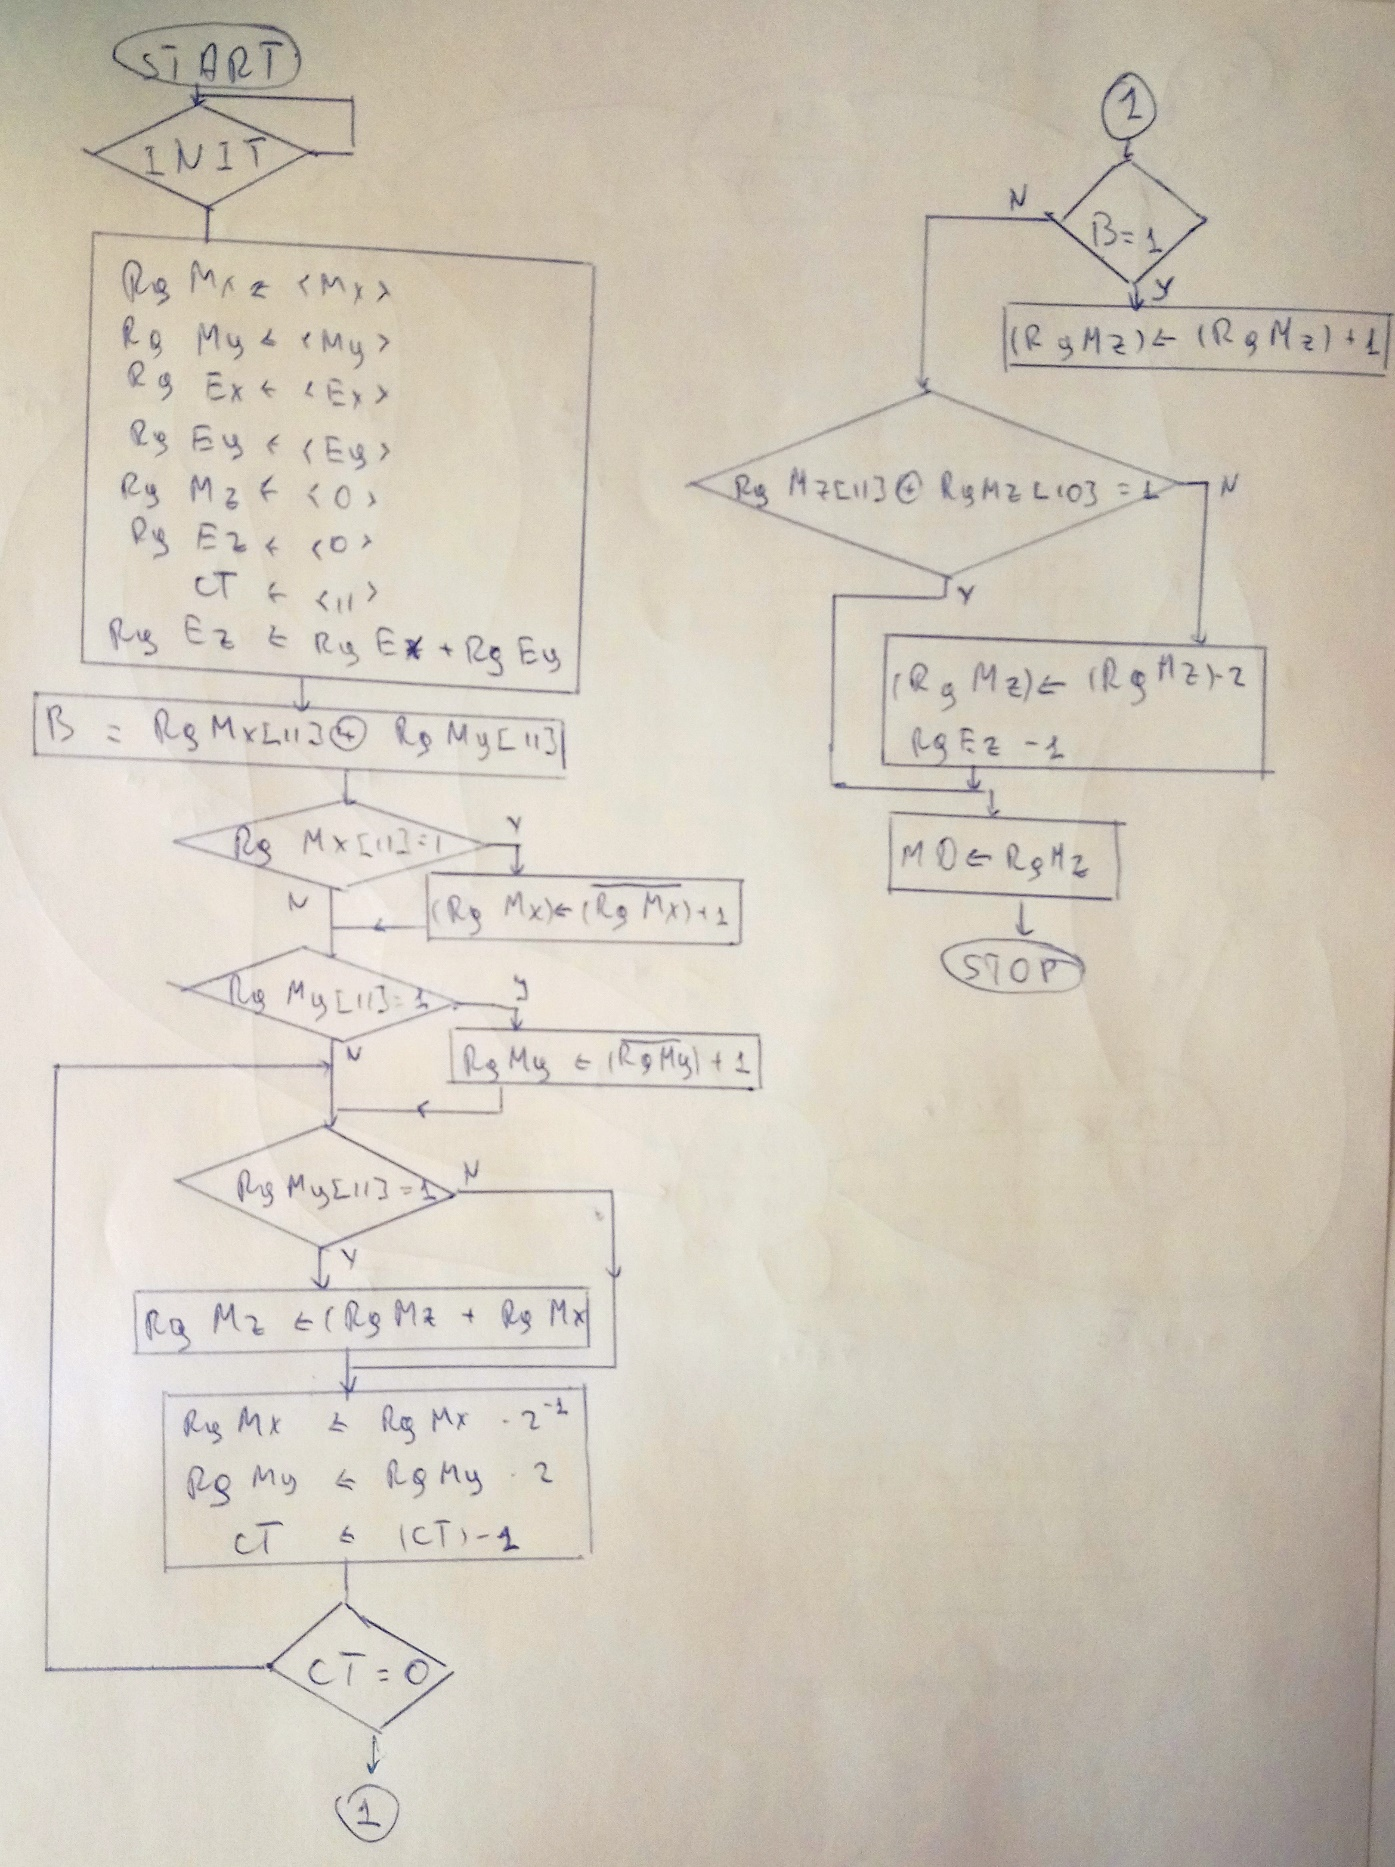 START
INIT
Rg Mx ← <Mx>
Rg My ← <My>
Rg Ex ← <Ex>
Rg Ey ← <Ey>
Rg Mz ← <0>
Rg Ez ← <0>
CT ← <11>
Rg Ez ← Rg Ex + Rg Ey
B = Rg Mx[11] ⊕ Rg My[11]
Rg Mx[11]=1
Y
N
(Rg Mx)←(\overline{Rg Mx})+1
Rg My[11]=1
Y
N
Rg My ← (\overline{Rg My})+1
Rg My[11]=1
N
Y
Rg Mz ←(Rg Mz + Rg Mx
Rg Mx ← Rg Mx · 2⁻¹
Rg My ← Rg My · 2
CT ← (CT)-1
CT = 0
1
1
B=1
N
Y
(Rg Mz)← (Rg Mz)+1
Rg Mz[11] ⊕ Rg Mz[10] = 1
N
Y
(Rg Mz)← (Rg Mz)·2
Rg Ez -1
MD ← Rg Mz
STOP